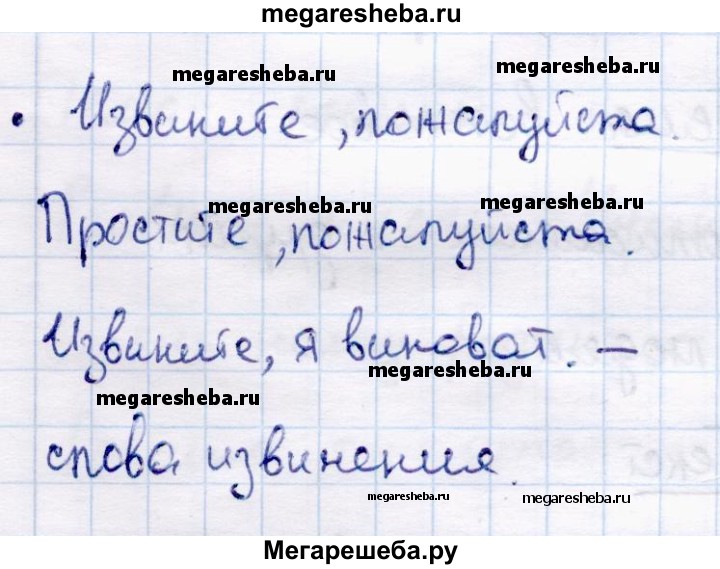 megaresheba.ru
megaresheba.ru megaresheba.ru
• Извините, пожалуйста.
megaresheba.ru megaresheba.ru
Простите, пожалуйста.
Извините, я виноват. –
megaresheba.ru megaresheba.ru
слова извинения.
megaresheba.ru megaresheba.ru
Мегарешеба.ру